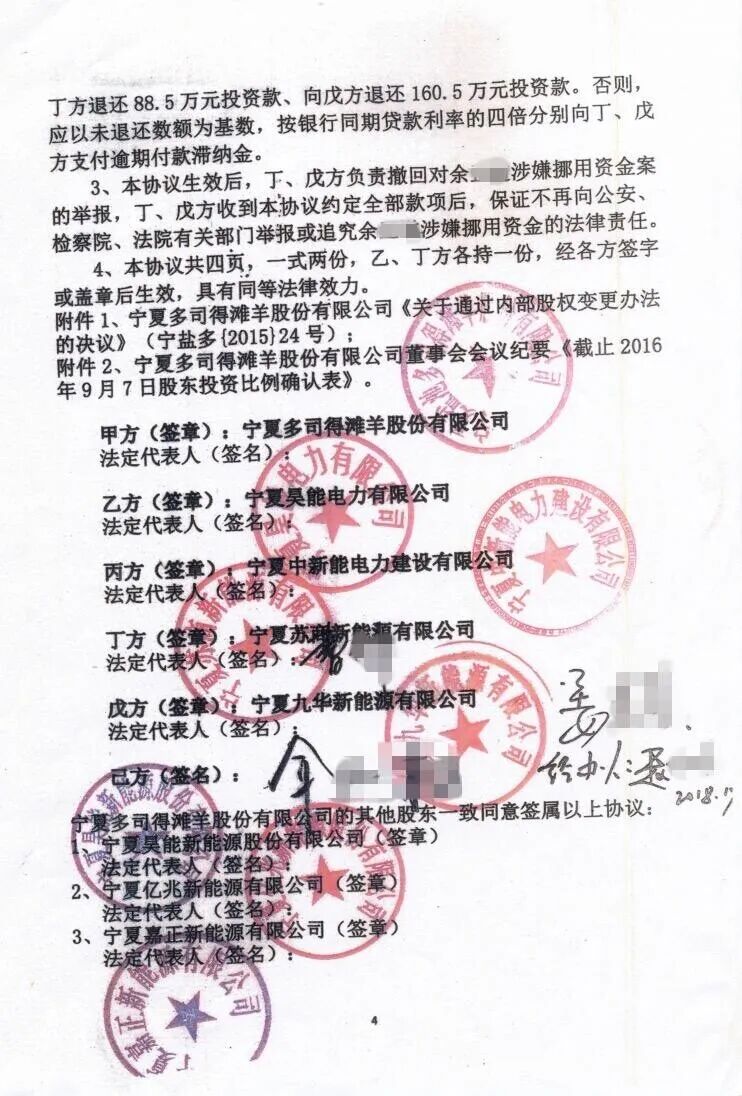 丁方退还88.5万元投资款、向戊方退还160.5万元投资款。否则，
应以未退还数额为基数，按银行同期贷款利率的四倍分别向丁、戊
方支付逾期付款滞纳金。
3、本协议生效后，丁、戊方负责撤回对余 涉嫌挪用资金案
的举报，丁、戊方收到本协议约定全部款项后，保证不再向公安、
检察院、法院有关部门举报或追究余 涉嫌挪用资金的法律责任。
4、本协议共四页，一式两份，乙、丁方各持一份，经各方签字
或盖章后生效，具有同等法律效力。
附件1、宁夏多司得滩羊股份有限公司《关于通过内部股权变更办法
的决议》（宁盐多{2015}24号）；
附件2、宁夏多司得滩羊股份有限公司董事会会议纪要《截止2016
年9月7日股东投资比例确认表》。
甲方（签章）：宁夏多司得滩羊股份有限公司
法定代表人（签名）：
乙方（签章）：宁夏昊能电力有限公司
法定代表人（签名）：
丙方（签章）：宁夏中新能电力建设有限公司
法定代表人（签名）：
丁方（签章）：宁夏苏商新能源有限公司
法定代表人（签名）：
戊方（签章）：宁夏九华新能源有限公司
法定代表人（签名）：
姜
己方（签名）：余
经办人：
2018.11
宁夏多司得滩羊股份有限公司的其他股东一致同意签属以上协议：
1、宁夏昊能新能源股份有限公司（签章）
法定代表人（签名）：
2、宁夏亿兆新能源有限公司（签章）
法定代表人（签名）：
3、宁夏嘉正新能源有限公司（签章）
法定代表人（签名）：
宁夏嘉正新能源有限公司
4